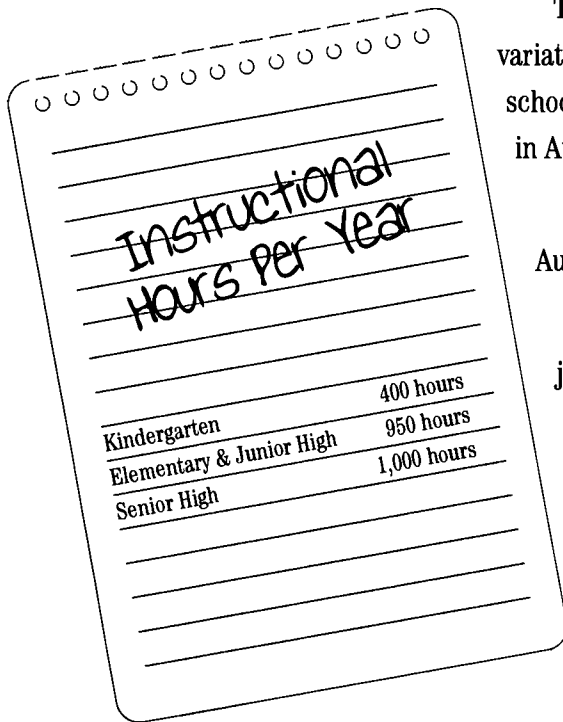 variat
schoo
in A
Au
j
Instructional
Hours Per Year
Kindergarten 400 hours
Elementary & Junior High 950 hours
Senior High 1,000 hours